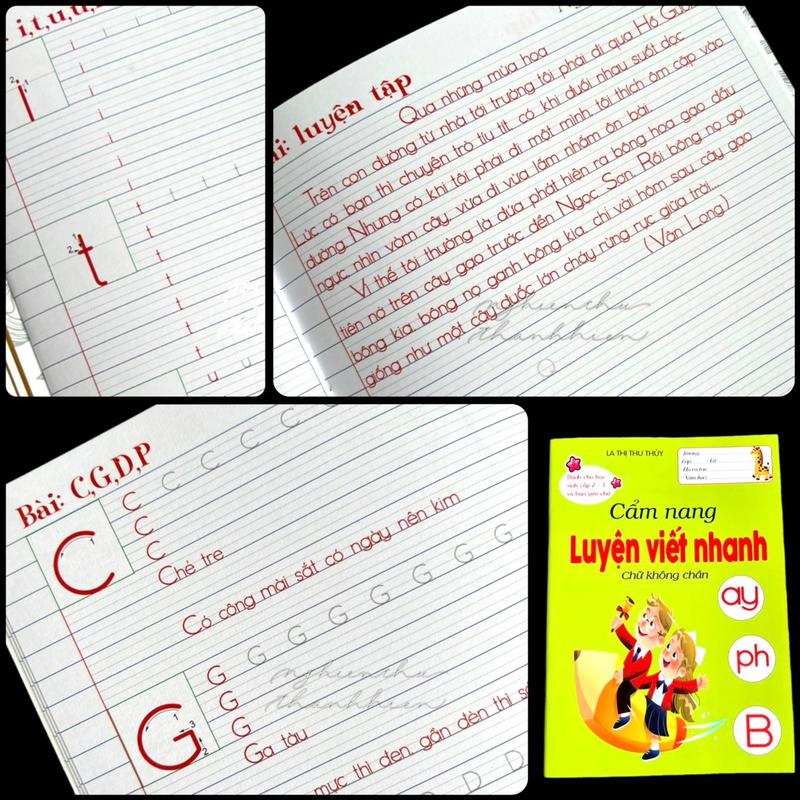 i,t,u,ư
2 1
i
i
i
i
i
i
2 1
t
t t t t t
t
t
t
t
t
t
u u
Bài: luyện tập
Qua những mùa hoa
Trên con đường từ nhà tới trường tôi phải đi qua Hồ Gươm
Lúc có bạn thì chuyện trò tíu tít, có khi đuổi nhau suốt dọc
đường. Nhưng có khi tôi phải đi một mình tôi thích ôm cặp vào
ngực nhìn vòm cây, vừa đi vừa lẩm nhẩm ôn bài.
Vì thế tôi thường là đứa phát hiện ra bông hoa gạo đầu
tiên nở trên cây gạo trước đền Ngọc Sơn. Rồi bông nọ gọi
bông kia, bông nọ ganh bông kia, chỉ vài hôm sau, cây gạo
giống như một cây đuốc lớn cháy rừng rực giữa trời...
(Vân Long)
nghienchu
thanhhien
Bài: C,G,D,P
1
C
C C C C C C C
C
C
C
Chẻ tre
Có công mài sắt có ngày nên kim
1 3
2
G
G G G G G G G G
G
G
G
Ga tàu
mực thì đen, gần đèn thì
D D D
nghienchu
thanhhien
LA THỊ THU THỦY
Trường:
Lớp:
Họ và tên:
Năm học:
Dành cho học
sinh cấp 2 - 3
và bạn yêu chữ
Cẩm nang
Luyện viết nhanh
Chữ không chân
ay
ph
B